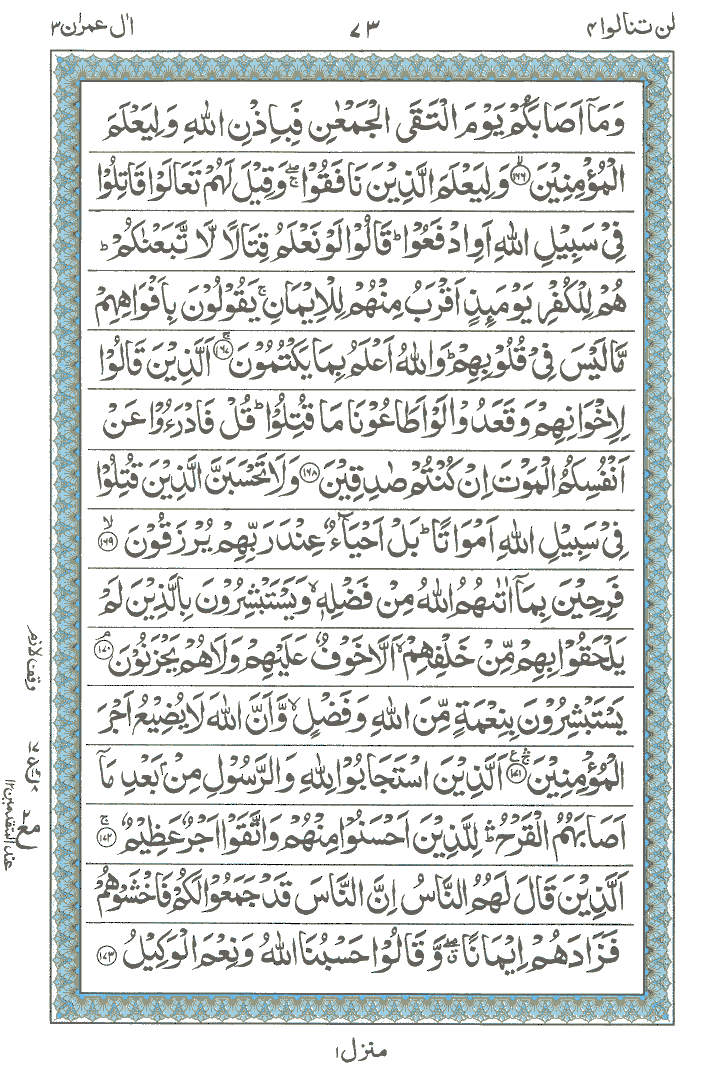 لن تنالوا ۴
۷۳
اٰل عمرٰن ۳
وَمَاۤ اَصَابَكُمْ يَوْمَ الْتَقَى الْجَمْعٰنِ فَبِاِذْنِ اللّٰهِ وَلِيَعْلَمَ
الْمُؤْمِنِيْنَۙ‏﴿۱۶۶﴾ وَلِيَعْلَمَ الَّذِيْنَ نَافَقُوْا ۖۚ وَقِيْلَ لَهُمْ تَعَالَوْا قَاتِلُوْا
فِىْ سَبِيْلِ اللّٰهِ اَوِ ادْفَعُوْا ؕ قَالُوْا لَوْ نَعْلَمُ قِتَالًا لَّا تَّبَعْنٰكُمْ ؕ
هُمْ لِلْكُفْرِ يَوْمَٮِٕذٍ اَقْرَبُ مِنْهُمْ لِلْاِيْمَانِ ۚ يَقُوْلُوْنَ بِاَفْوَاهِهِمْ
مَّا لَيْسَ فِىْ قُلُوْبِهِمْ ؕ وَاللّٰهُ اَعْلَمُ بِمَا يَكْتُمُوْنَۚ‏﴿۱۶۷﴾ اَلَّذِيْنَ قَالُوْا
لِاِخْوَانِهِمْ وَقَعَدُوْا لَوْ اَطَاعُوْنَا مَا قُتِلُوْا ؕ قُلْ فَادْرَءُوْا عَنْ
اَنْفُسِكُمُ الْمَوْتَ اِنْ كُنْتُمْ صٰدِقِيْنَ‏﴿۱۶۸﴾ وَلَا تَحْسَبَنَّ الَّذِيْنَ قُتِلُوْا
فِىْ سَبِيْلِ اللّٰهِ اَمْوَاتًا ؕ بَلْ اَحْيَآءٌ عِنْدَ رَبِّهِمْ يُرْزَقُوْنَۙ‏﴿۱۶۹﴾
فَرِحِيْنَ بِمَاۤ اٰتٰٮهُمُ اللّٰهُ مِنْ فَضْلِهٖ ۙ وَيَسْتَبْشِرُوْنَ بِالَّذِيْنَ لَمْ
يَلْحَقُوْا بِهِمْ مِّنْ خَلْفِهِمْ ۙ اَلَّا خَوْفٌ عَلَيْهِمْ وَلَا هُمْ يَحْزَنُوْنَۘ‏﴿۱۷۰﴾
يَسْتَبْشِرُوْنَ بِنِعْمَةٍ مِّنَ اللّٰهِ وَفَضْلٍ ۙ وَّاَنَّ اللّٰهَ لَا يُضِيْعُ اَجْرَ
الْمُؤْمِنِيْنَ ۛۚ ع ‏﴿۱۷۱﴾ اَلَّذِيْنَ اسْتَجَابُوْا لِلّٰهِ وَالرَّسُوْلِ مِنْۢ بَعْدِ مَاۤ
اَصَابَهُمُ الْقَرْحُ ۛؕ لِلَّذِيْنَ اَحْسَنُوْا مِنْهُمْ وَاتَّقَوْا اَجْرٌ عَظِيْمٌۚ‏﴿۱۷۲﴾
اَلَّذِيْنَ قَالَ لَهُمُ النَّاسُ اِنَّ النَّاسَ قَدْ جَمَعُوْا لَكُمْ فَاخْشَوْهُمْ
فَزَادَهُمْ اِيْمَانًا ۖ ۗ وَّقَالُوْا حَسْبُنَا اللّٰهُ وَنِعْمَ الْوَكِيْلُ‏﴿۱۷۳﴾
وقف لازم
عند المتقدمین ۱۲
منزل ۱